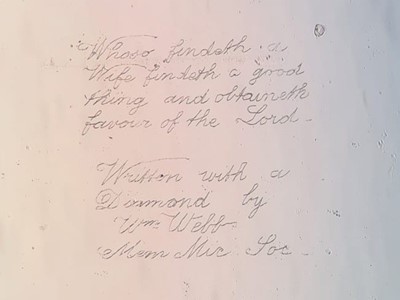 Whoso findeth a
Wife findeth a good
thing and obtaineth
favour of the Lord.
Written with a
Diamond by
Wm Webb
Mem Mic Soc